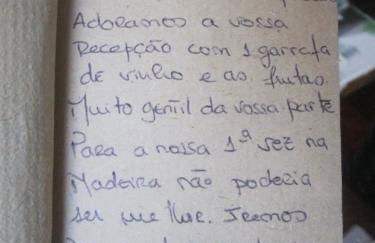 Adoramos a vossa
Recepção com 1 garrafa
de vinho e as frutas.
Muito gentil da vossa parte
Para a nossa 1ª vez na
Madeira não poderia
ser melhor. Iremos